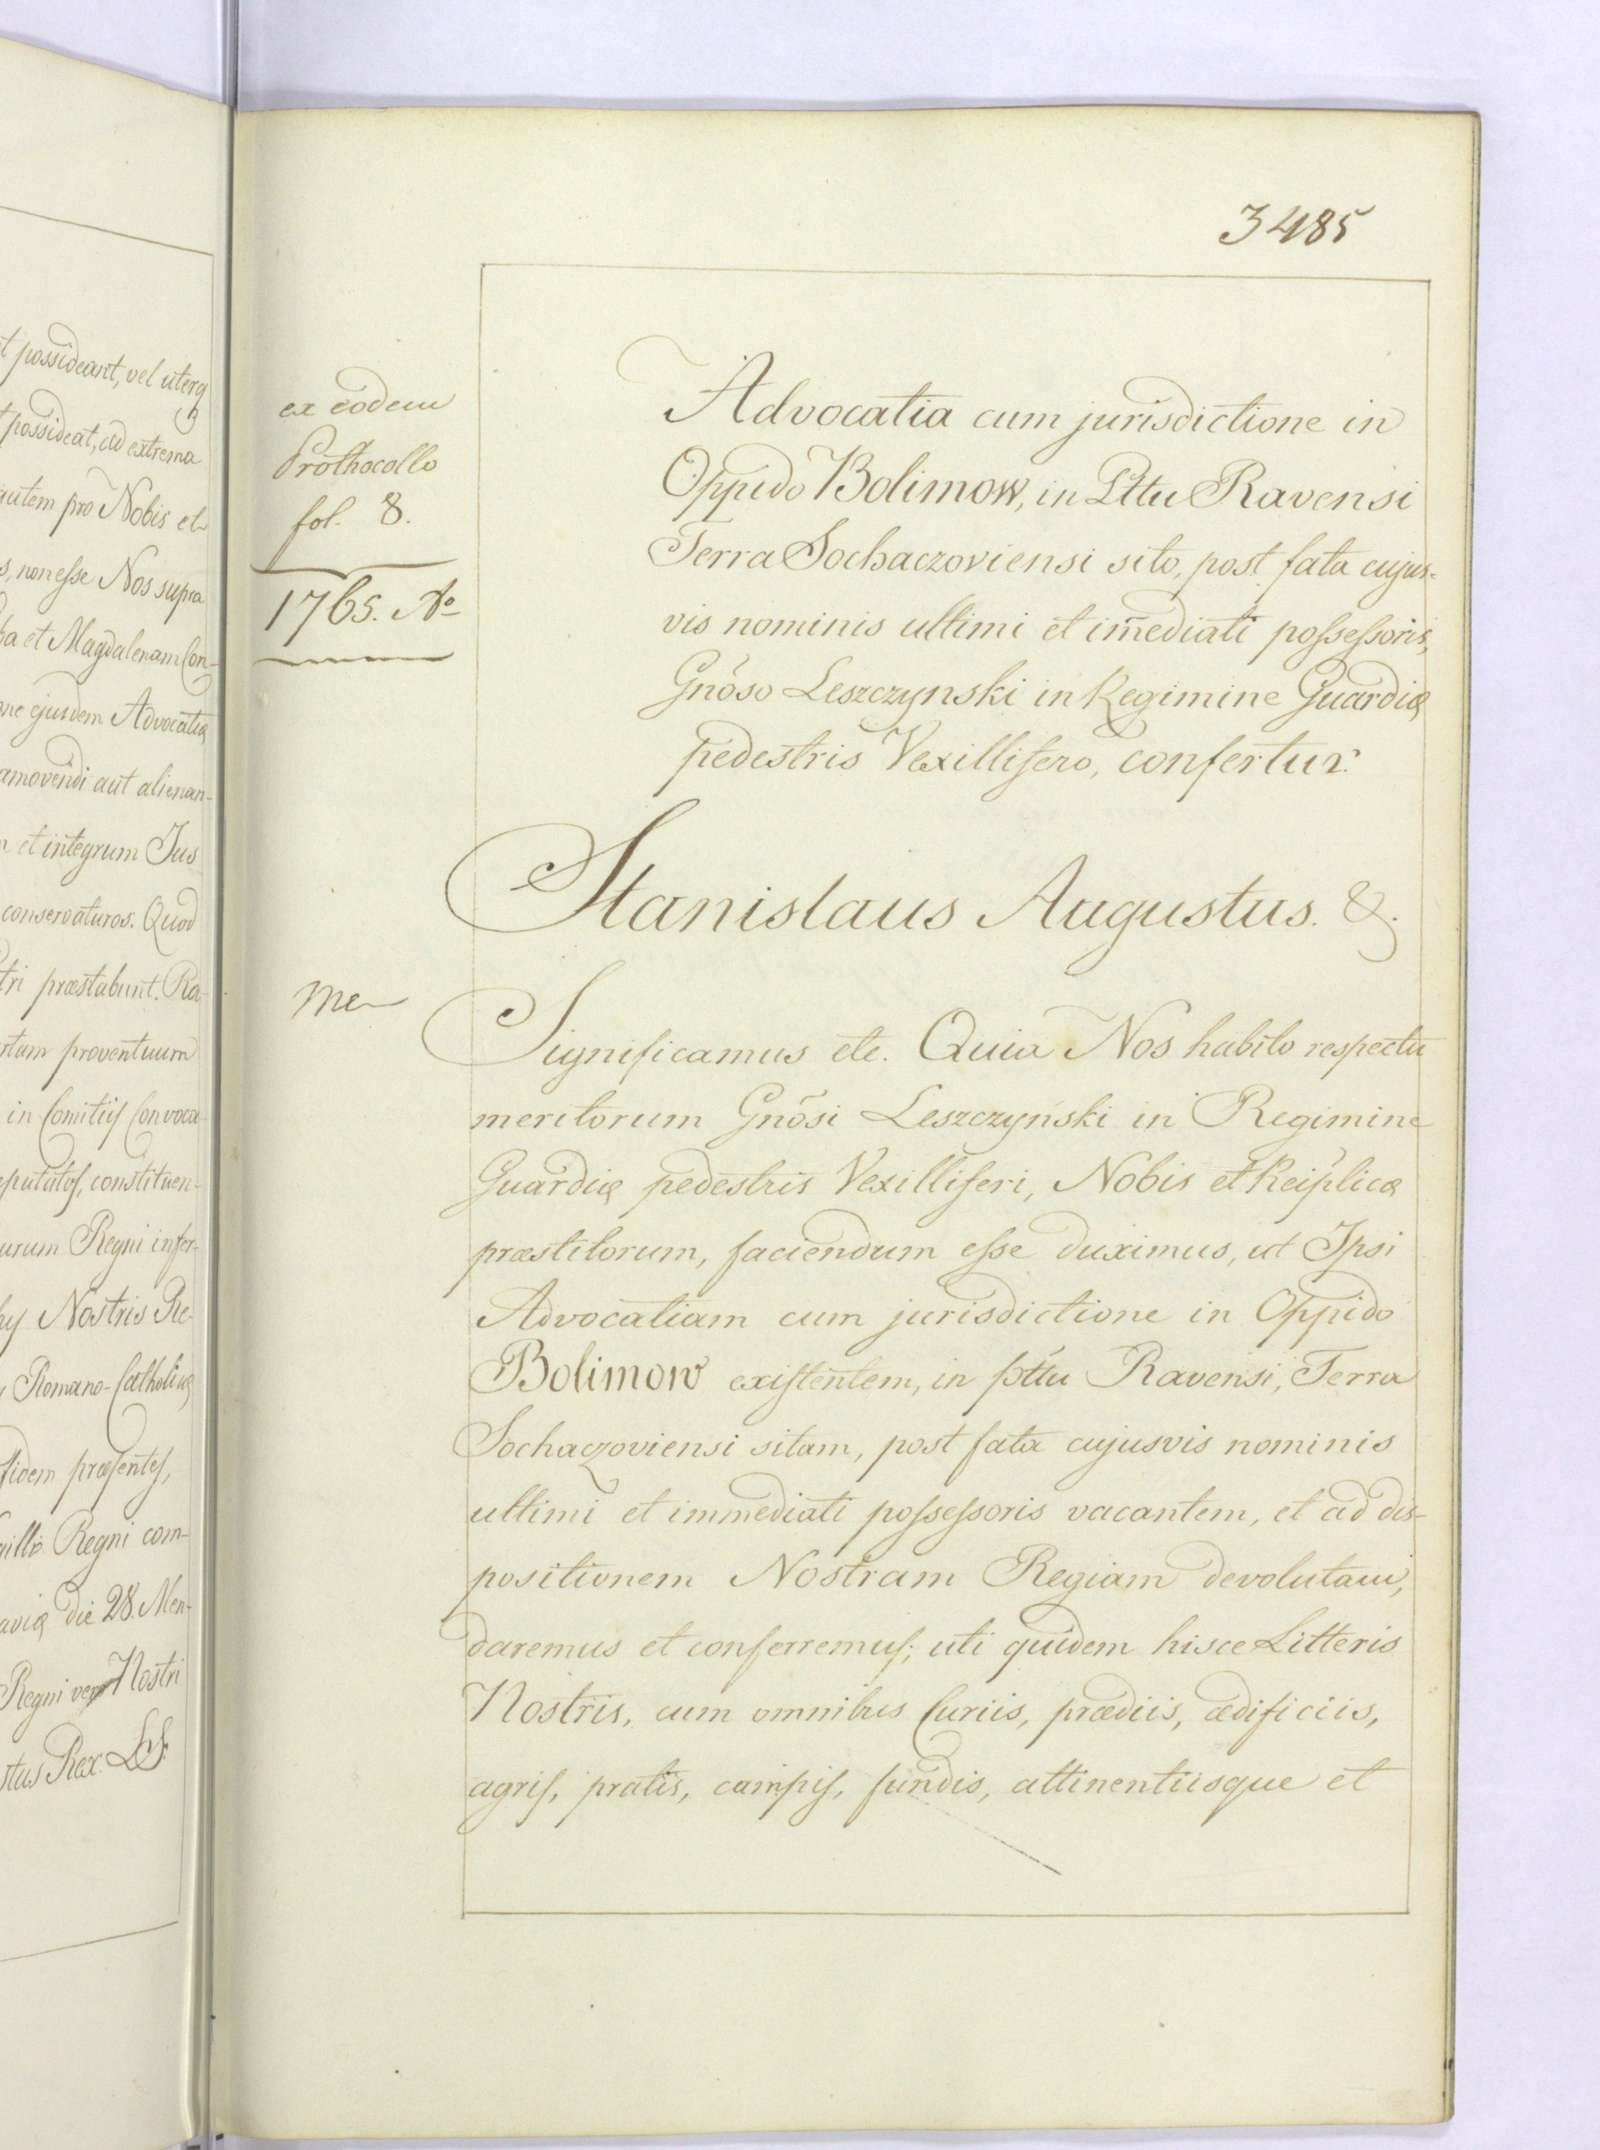 t possideant, vel uterq
t possideat, ad extrema
autem pro Nobis et
s, non esse Nos supra
ba et Magdalenam Con-
one ejusdem Advocatiæ
amovendi aut alienan-
n et integrum Jus
conservaturos. Quod
tri præstabunt. Ra-
rtam proventuum
in Comitijs Convoca-
eputatos, constituen-
urum Regni infer-
hy Nostris Re-
Romano-Catholicæ
fidem præsentes,
gilli Regni com-
aviæ die 28. Men-
Regni vero Nostri
stus Rex. LS.
3485
ex eodem
Prothocollo
fol. 8.
1765. Ao
Advocatia cum jurisdictione in
Oppido Bolimow, in Pttu Ravensi
Terra Sochaczoviensi sito, post fata cujus-
vis nominis ultimi et im̄ediati possessoris,
Gnõso Leszczynski in Regimine Guardiæ
pedestris Vexillifero, confertur.
Stanislaus Augustus. &.
me
Significamus etc. Quia Nos habito respectu
meritorum Gnõsi Leszczyński in Regimine
Guardiæ pedestris Vexilliferi, Nobis et Reiplicæ
præstitorum, faciendum esse duximus, ut Ipsi
Advocatiam cum jurisdictione in Oppido
Bolimow existentem, in pttu Ravensi, Terra
Sochaczoviensi sitam, post fata cujusvis nominis
ultimi et immediati possessoris vacantem, et ad dis-
positionem Nostram Regiam devolutam,
daremus et conferremus; uti quidem hisce Litteris
Nostris, cum omnibus Curiis, prædiis, ædificiis,
agris, pratis, campis, fundis, attinentiisque et